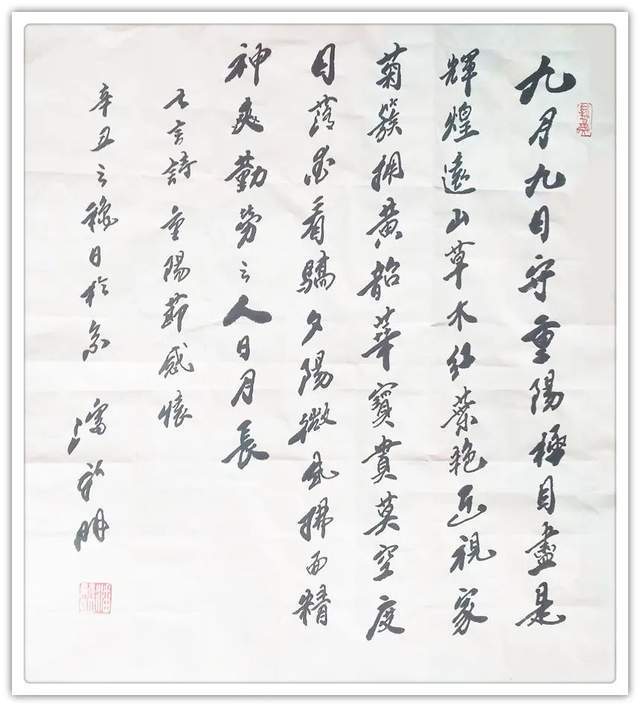 九月九日守重陽極目盡是
輝煌遠山草木红葉艳近視家
菊簇拥黄韶華寶貴莫空度
日落看驕夕陽微风拂面精
神爽勤勞之人日月長
七言詩重陽莭感懷
辛丑之秋日於京